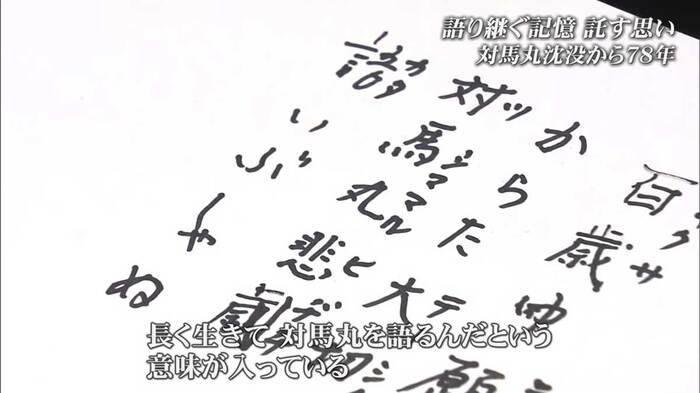 語り継ぐ記憶 託す思い
対馬丸沈没から78年
百歳ゆ願
からた大切
対馬丸悲劇
語いぶしゃね
長く生きて 対馬丸を語るんだという
意味が入っている